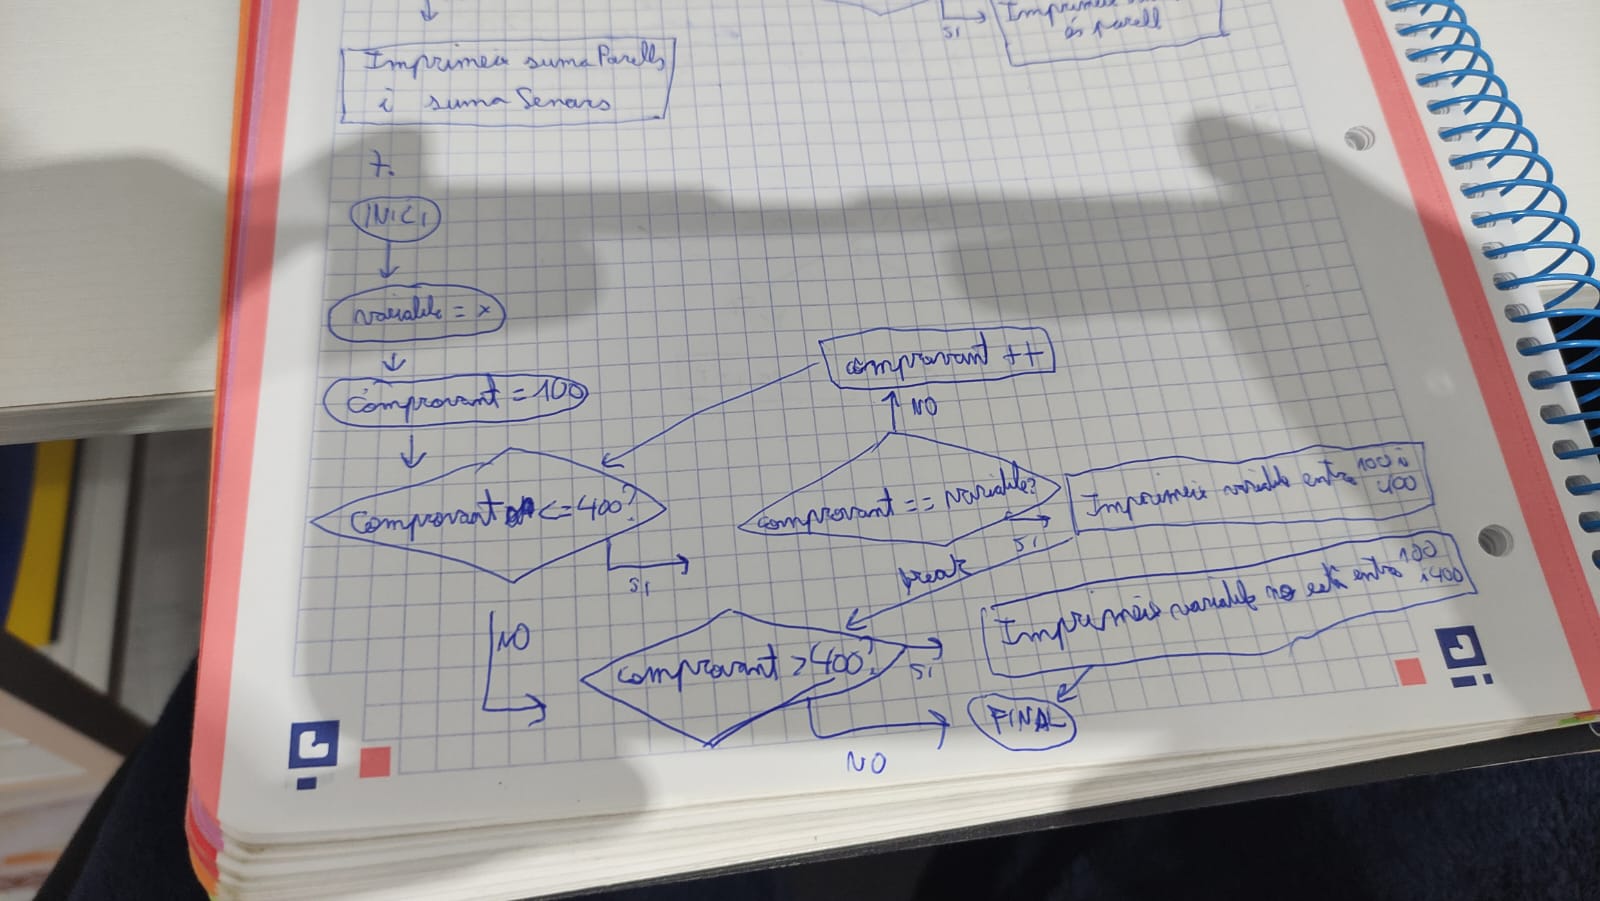 Imprimeix
és parell
SI
Imprimeix sumaParells
i sumaSenars
7.
INICI
variable = x
comprovant = 100
comprovant ++
NO
comprovant <= 400?
SI
comprovant == variable?
SI
Imprimeix variable entre 100 i 400
break
NO
comprovant > 400?
SI
Imprimeix variable no està entre 100 i 400
NO
FINAL